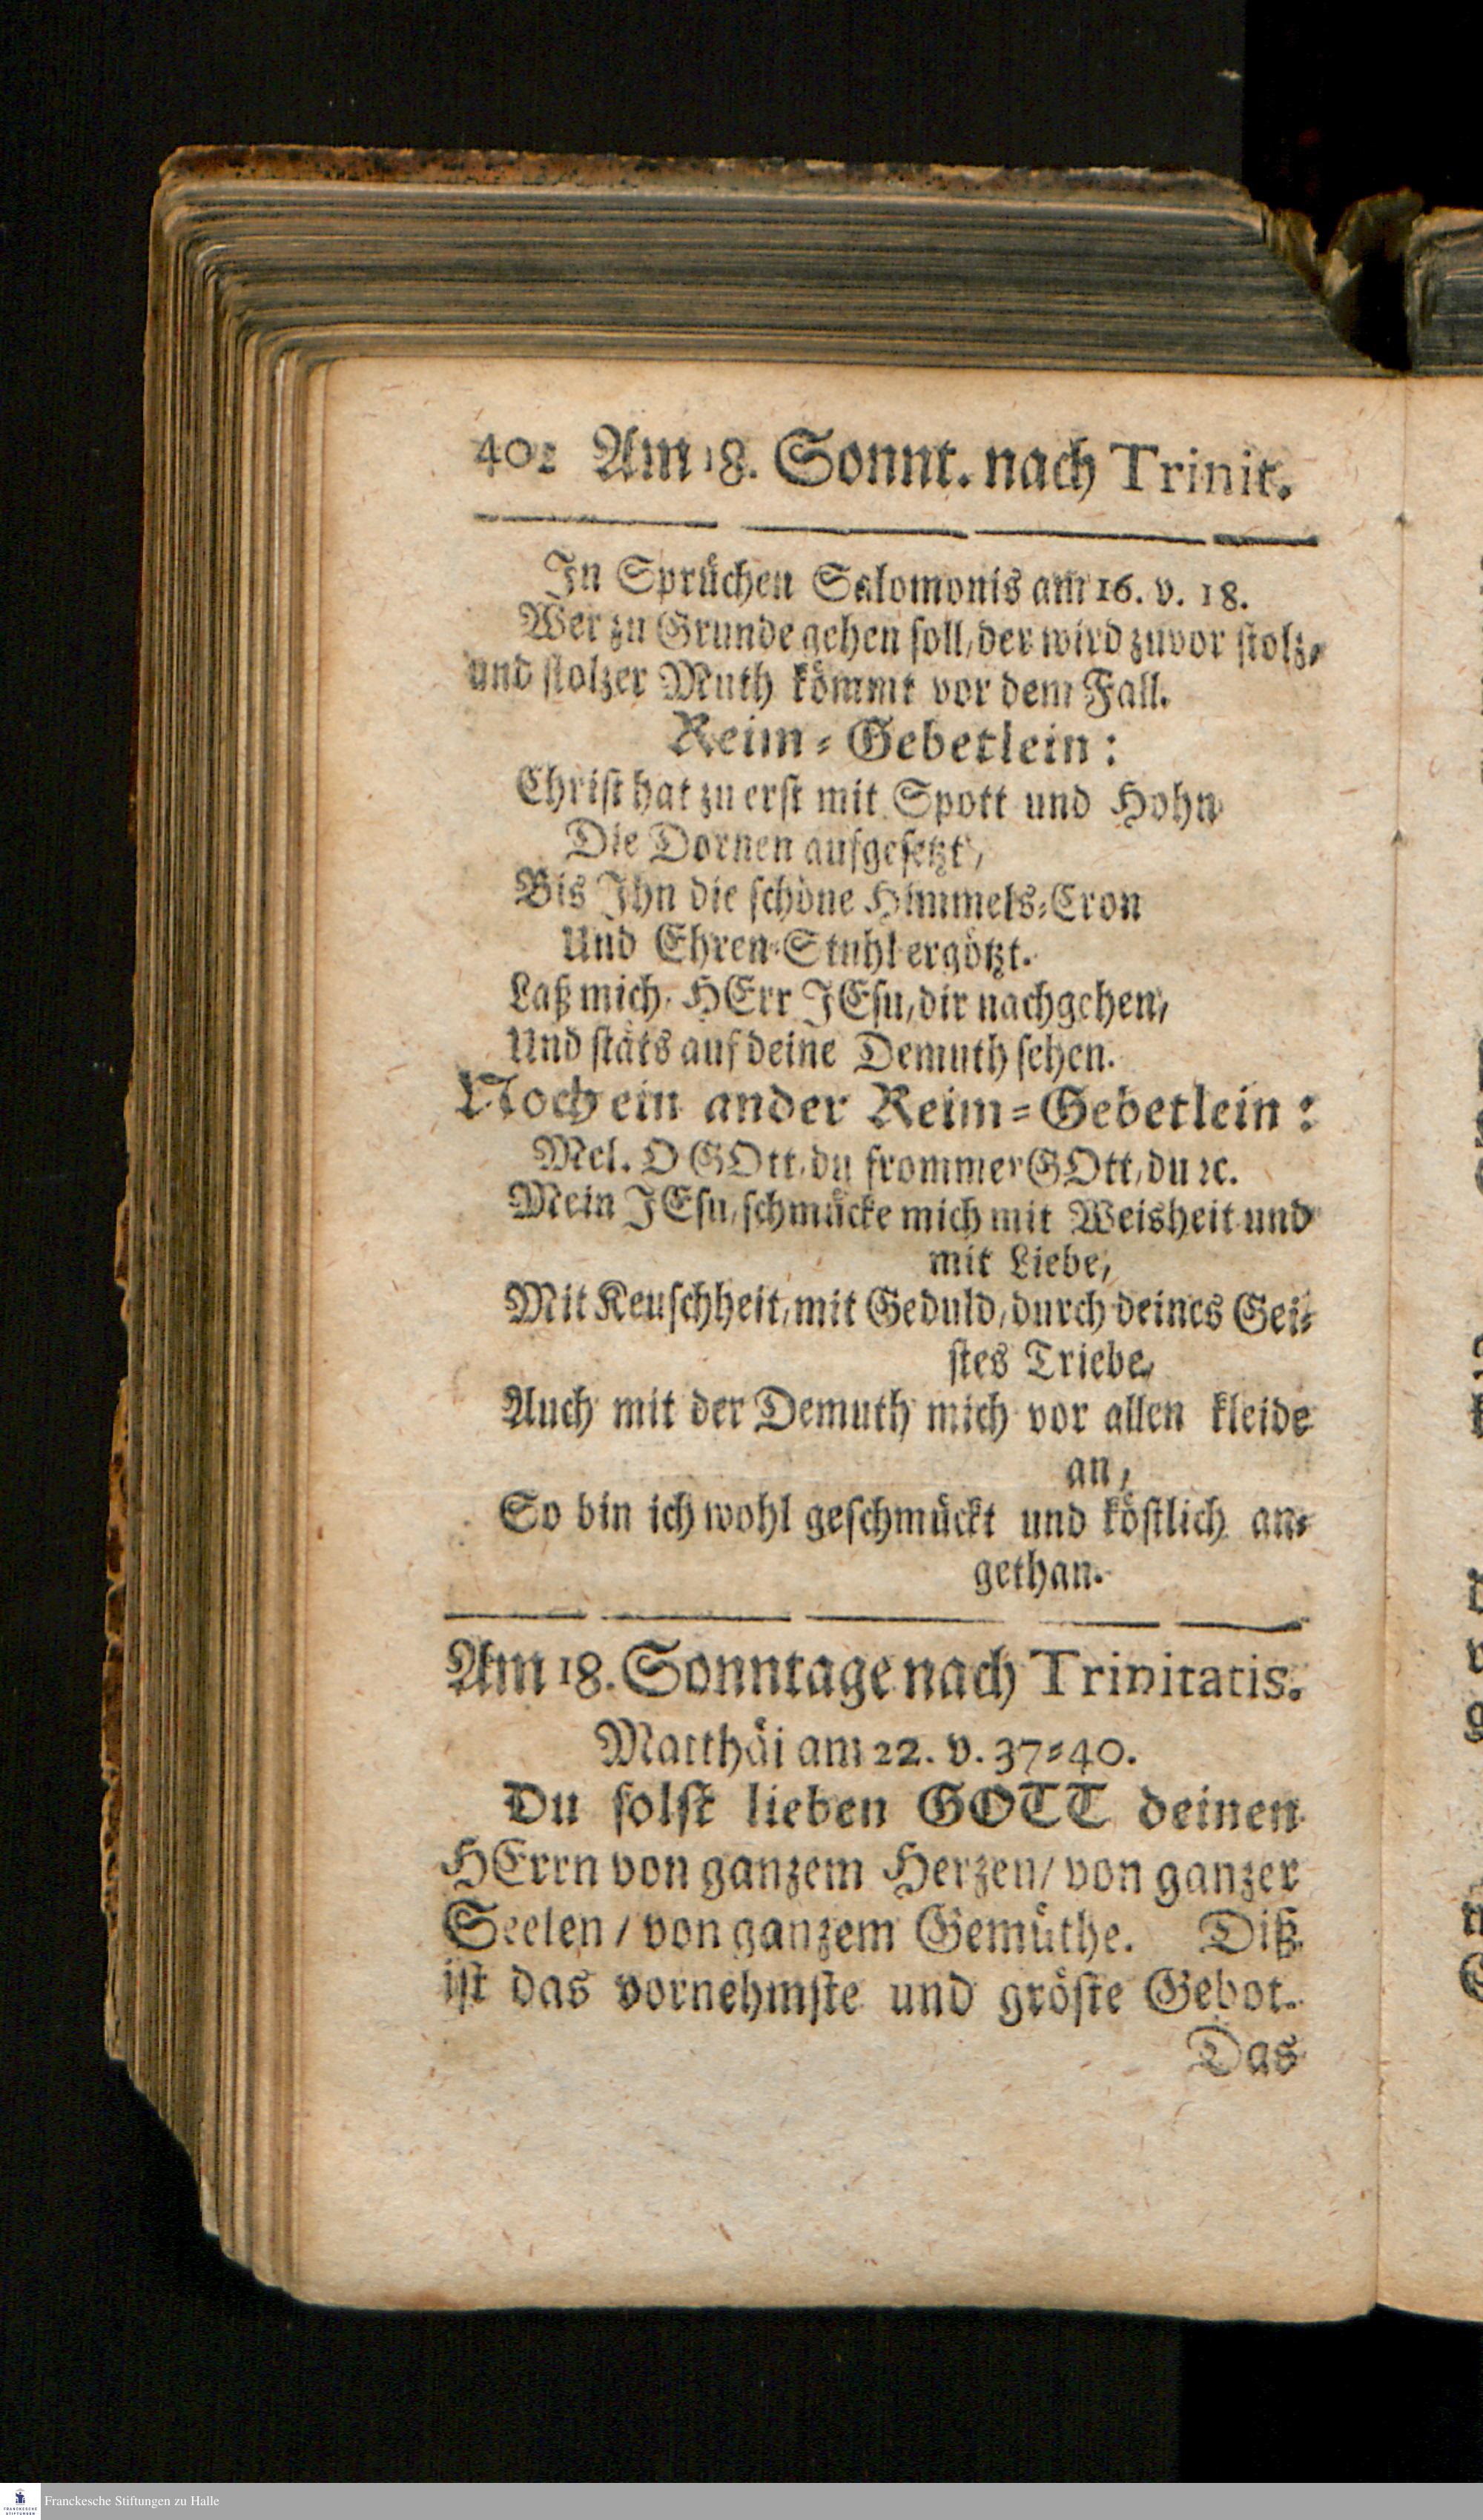 402 Am 18. Sonnt. nach Trinit.
In Sprüchen Salomonis am 16. v. 18.
Wer zu Grunde gehen soll, der wird zuvor stolz,
und stolzer Muth kömmt vor dem Fall.
Reim-Gebetlein:
Christ hat zu erst mit Spott und Hohn
Die Dornen aufgesetzt,
Bis Ihn die schöne Himmels-Cron
Und Ehren-Stuhl ergötzt.
Laß mich, HErr JEsu, dir nachgehen,
Und stäts auf deine Demuth sehen.
Noch ein ander Reim-Gebetlein:
Mel. O GOtt, du frommer GOtt, du ꝛc.
Mein JEsu, schmücke mich mit Weisheit und
mit Liebe,
Mit Keuschheit, mit Geduld, durch deines Gei-
stes Triebe,
Auch mit der Demuth mich vor allen kleide
an,
So bin ich wohl geschmückt und köstlich an-
gethan.
Am 18. Sonntage nach Trinitatis.
Matthäi am 22. v. 37-40.
Du solst lieben GOTT deinen
HErrn von ganzem Herzen/ von ganzer
Seelen / von ganzem Gemüthe. Diß
ist das vornehmste und gröste Gebot.
Das
Franckesche Stiftungen zu Halle
FRANCKESCHE
STIFTUNGEN